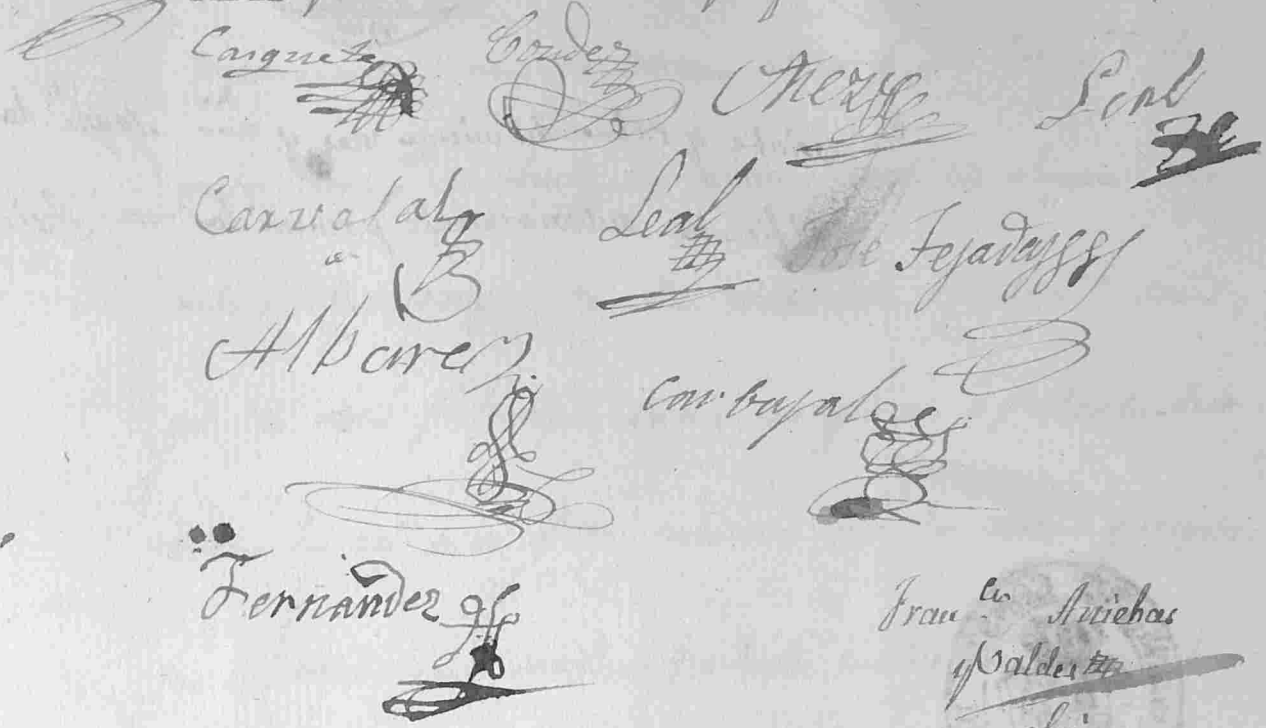 Casquete Cordez Merz Leal
Carvajal Leal José Tejada
Albarez Carbajal
Fernandez Fran.co
y Valdes